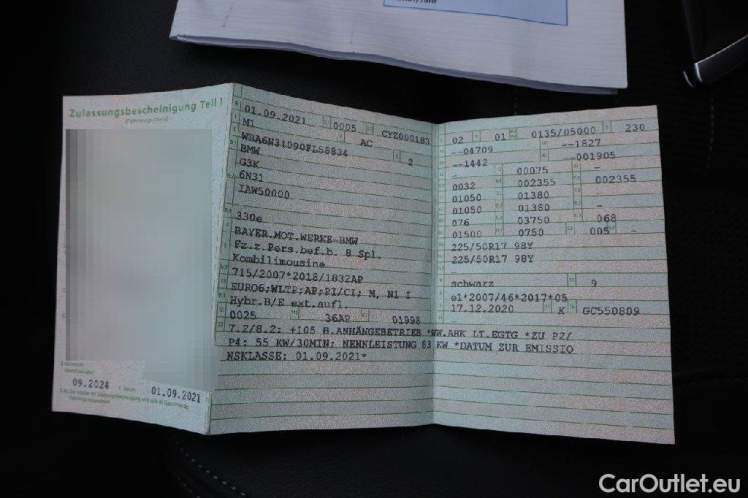 Zulassungsbescheinigung Teil I
01.09.2021 0005 CYZ000183
M1 AC
WBA6N31090FL58834 2
BMW
G3K
6N31
IAW50000
330e
BAYER.MOT.WERKE-BMW
Fz.z.Pers.bef.b. 8 Spl.
Kombilimousine
715/2007*2018/1832AP
EURO6;WLTP;AP;PI/CI; M, N1 I
Hybr.B/E ext.aufl.
0025 36AP 01998
7.2/8.2: +105 B.ANHÄNGEBETRIEB *WW.AHK LT.EGTG *ZU P2/
P4: 55 KW/30MIN; NENNLEISTUNG 83 KW *DATUM ZUR EMISSIO
NSKLASSE: 01.09.2021*
09.2024 01.09.2021
02 01 0135/05000 230
--04709 --1827
--1442 --001905
00075 -
0032 002355 002355
01050 01380 -
01050 01380 -
076 03750 068
01500 0750 005 -
225/50R17 98Y
225/50R17 98Y
-
schwarz 9
e1*2007/46*2017*05
17.12.2020 K GC550809
CarOutlet.eu